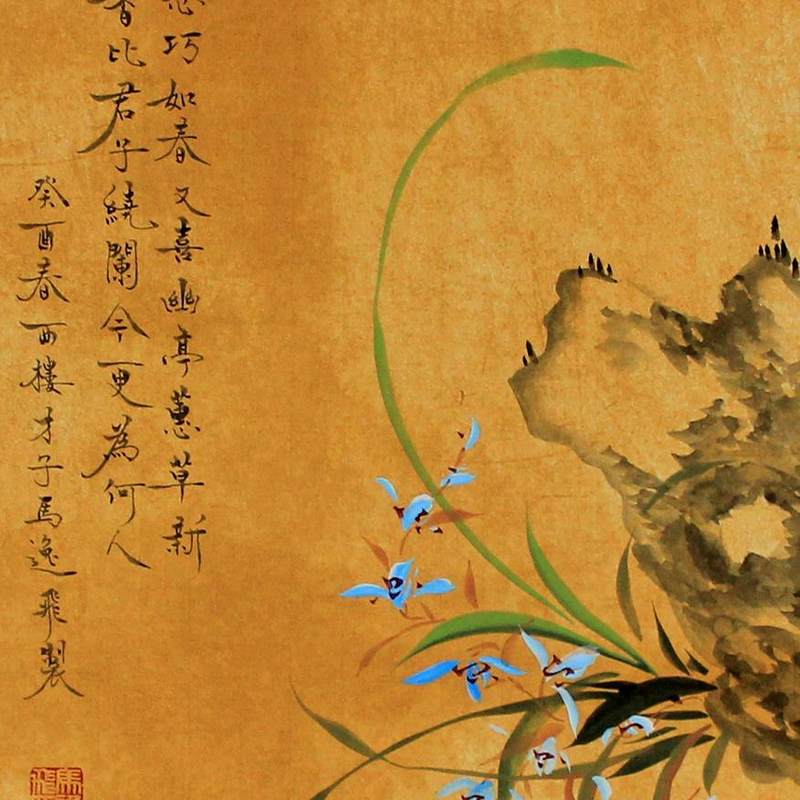 巧如春又喜幽亭蕙草新
比君子繞闌今更為何人
癸酉春西樓才子馬逸飛製